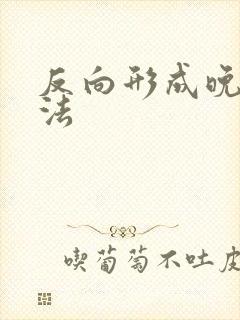 反向形成晚
法
喫葡萄不吐皮